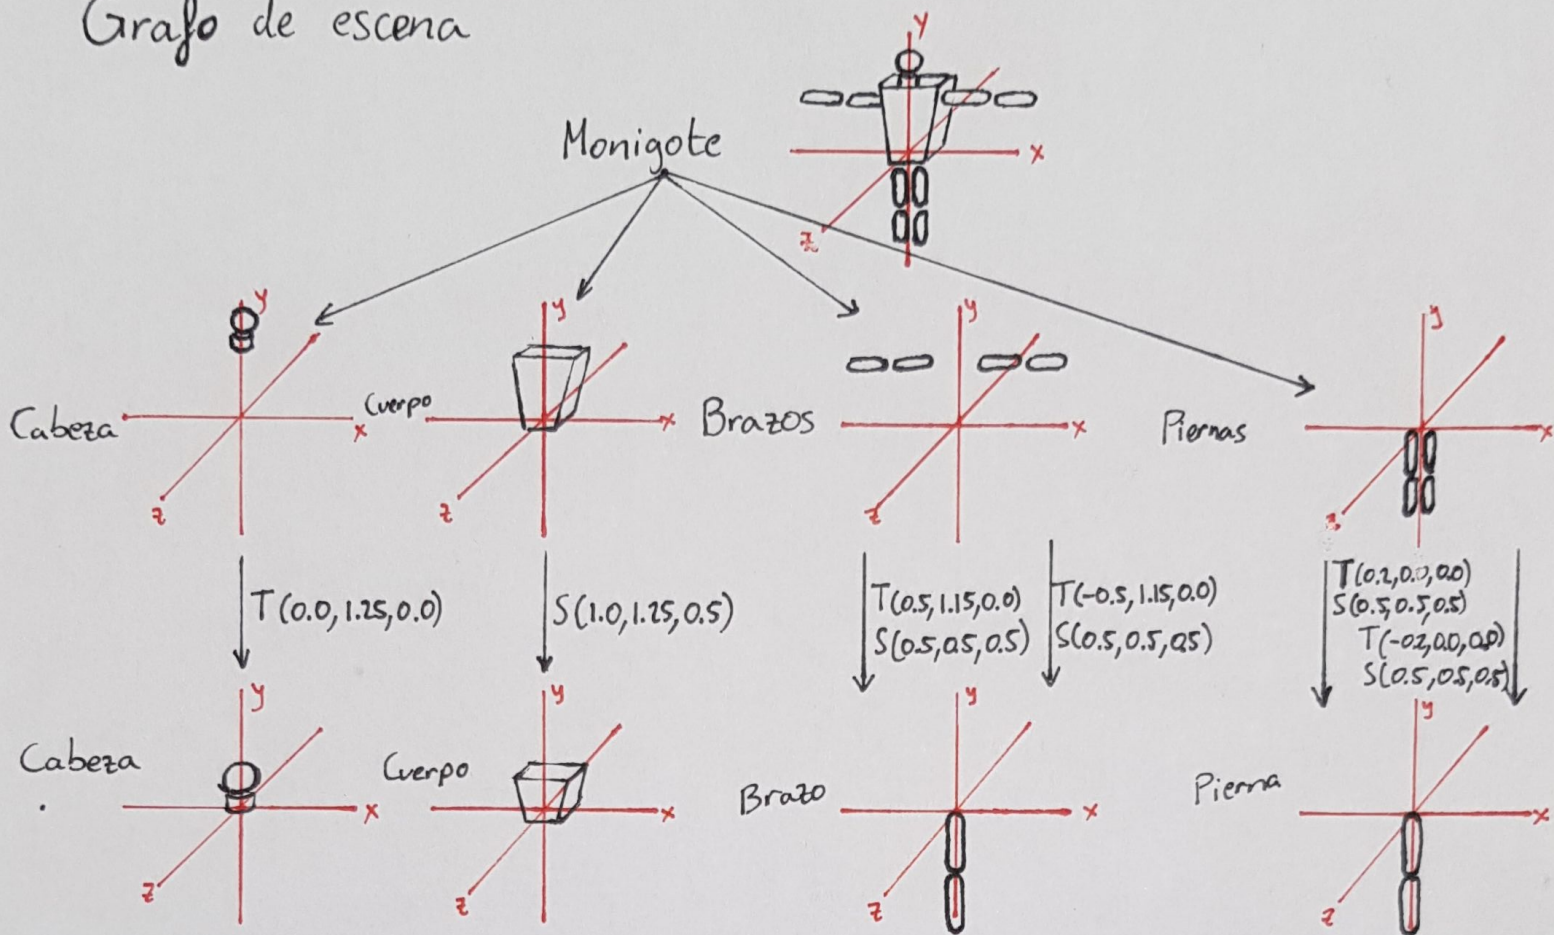 Grafo de escena
y
Monigote
x
z
y
y
y
y
Cabeza
x
Cuerpo
x
Brazos
x
Piernas
x
z
z
z
z
T(0.0,1.25,0.0)
S(1.0,1.25,0.5)
T(0.5,1.15,0.0)
S(0.5,0.5,0.5)
T(-0.5,1.15,0.0)
S(0.5,0.5,0.5)
T(0.2,0.0,0.0)
S(0.5,0.5,0.5)
T(-0.2,0.0,0.0)
S(0.5,0.5,0.5)
y
y
y
y
Cabeza
x
Cuerpo
x
Brazo
x
Pierna
x
z
z
z
z